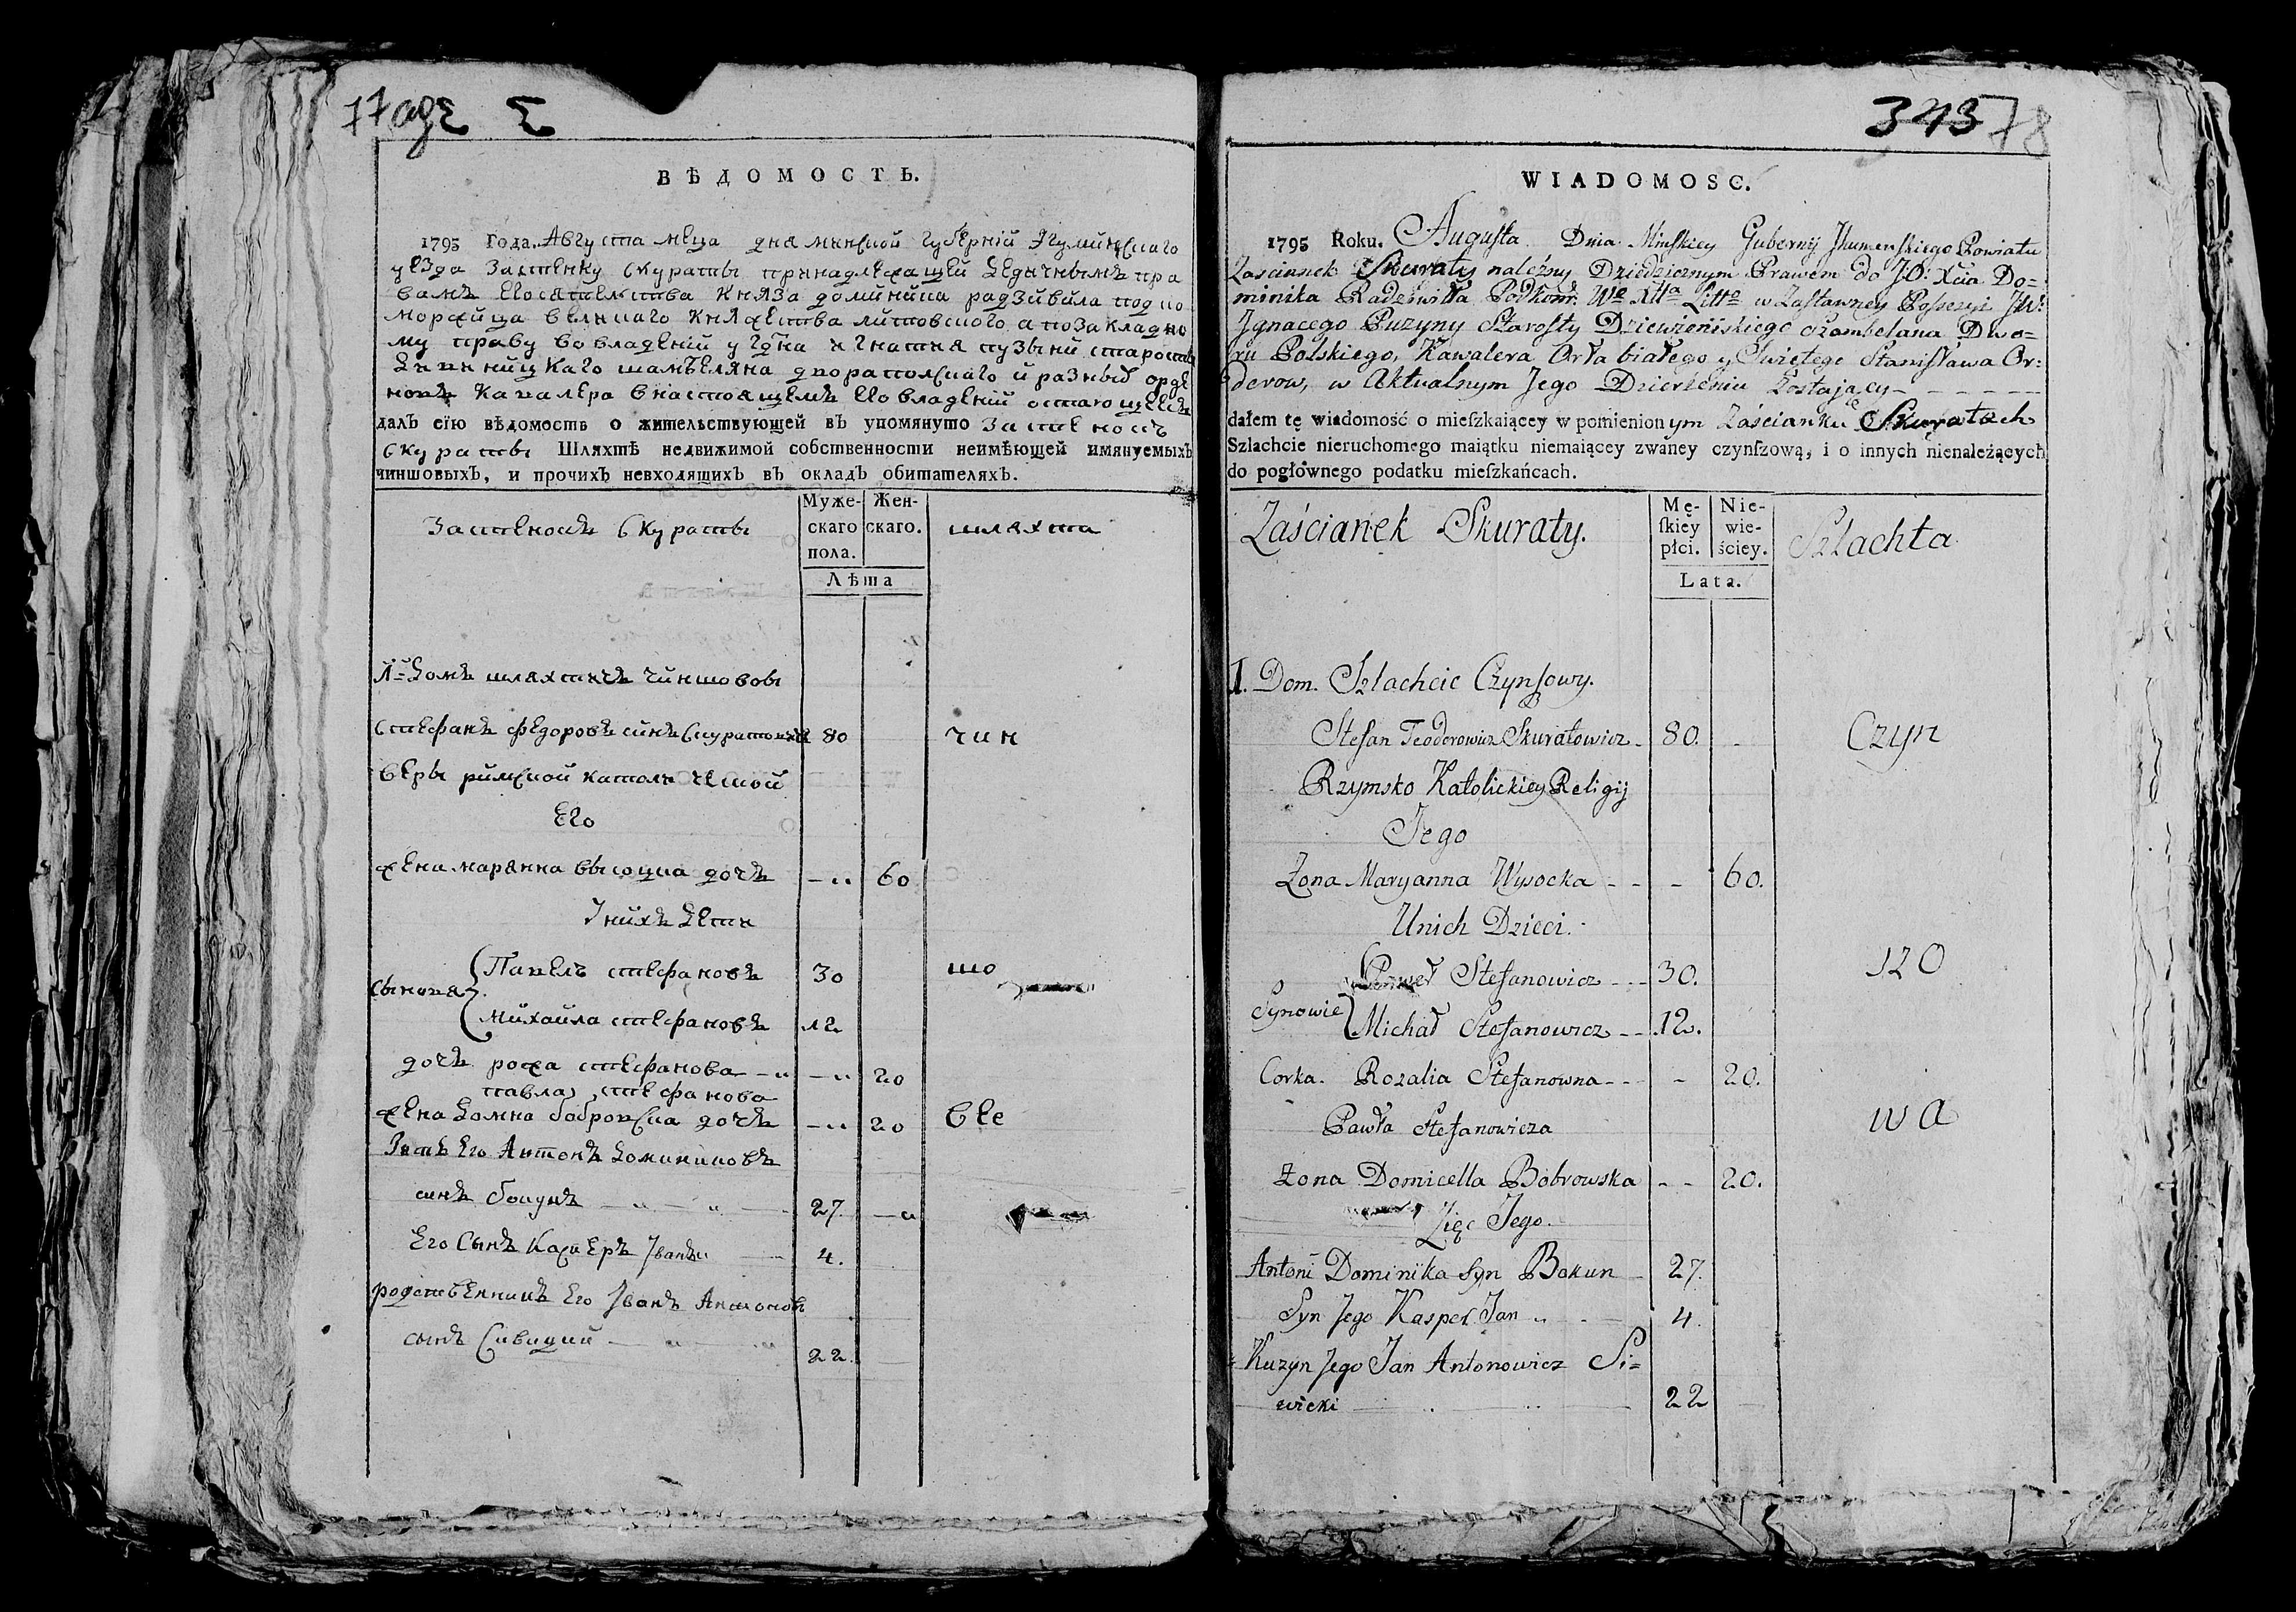 ВѢДОМОСТЬ.
1795 Года. Августа мѣца дня минской губерній Игуминскаго
уезда Застенку Скураты принадлежащей Ведычнымъ пра
вамъ Его сятелства Княза доминика радзивила подко
моржица великаго княжества литовского а позакладно
му праву во владеній у Гдна игнатия пузыни старосты
шамбеляна двора полскаго и разныхъ орде
новъ Кавалера внастоящемъ Его владеній остающейся
далъ сїю вѣдомость о жительствующей въ упомянуто Застенокъ
Скураты Шляхтѣ недвижимой собственности неимѣющей имянуемыхъ
чиншовыхъ, и прочихъ невходящихъ въ окладъ обитателяхъ.
Застенокъ Скураты
Муже-
скаго
пола.
Жен-
скаго.
шляхта
Лѣта
1й Домъ шляхтичъ чиншовы
Стефанъ Федоровъ синъ Скуратовичъ 80 чин
веры римской католической
Его
жена марянна высоцка дочъ — 60
У нихъ Дети
сыновя { Павелъ стефановъ 30 шо
михайла стефановъ 12
дочъ рожа стефанова — 20
павла стефанова
жена Домна бобровска дочъ — 20 вее
Зять Его Антонъ Доминиковъ
синъ бокунъ 27. —
Его Сынъ Каспѣръ Іванъ 4.
родственникъ Его Іванъ Антоновъ
сынъ Сивицкий — 22.
343 78
WIADOMOSC.
1795 Roku. Augusta Dnia Minskiey Gubernij Jhumenskiego Powiatu
Zascianek Skuraty należny Dziedzicznym Prawem do JO: Xcia Do=
minika Radziwiłła Podkom: Wo Xtta Litto w Zastawney Possessyi JW:
Jgnacego Puzyny Starosty Dziewieniskiego Szambelana Dwo=
ru Polskiego, Kawalera Orła białego y Swiętego Stanisława Or:
derow, w Aktualnym Jego Dzierżeniu Zostaiący
dałem tę wiadomość o mieſzkaiącey w pomienionym Zaścianku Skuratach
Szlachcie nieruchomego maiątku niemaiącey zwaney czynſzową, i o innych nienależących
do pogłównego podatku mieſzkańcach.
Zaścianek Skuraty.
Mę-
ſkiey
płci.
Nie-
wie-
ściey.
Szlachta
Lata.
1. Dom. Szlachcic Czynszowy.
Stefan Teodorowicz Skuratowicz 80. - Czyn
Rzymsko Katolickiey Religij
Jego
Zona Maryanna Wysocka - - - 60.
Unich Dzieci.
Synowie { Paweł Stefanowicz - - 30. szo
Michał Stefanowicz - - 12.
Corka. Rozalia Stefanowna - - - 20.
Pawła Stefanowicza wa
żona Domicella Bobrowska - - 20.
Zięc Jego.
Antoni Dominika Syn Bokun 27.
Syn Jego Kasper Jan 4.
Kuzyn Jego Jan Antonowicz Si=
wicki 22